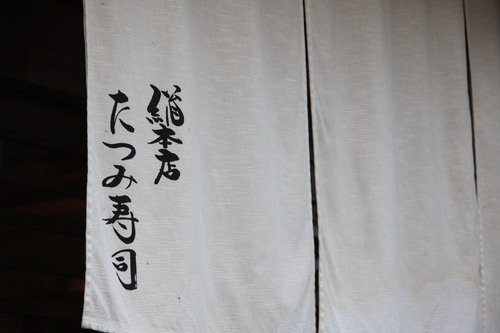 総本店
たつみ寿司